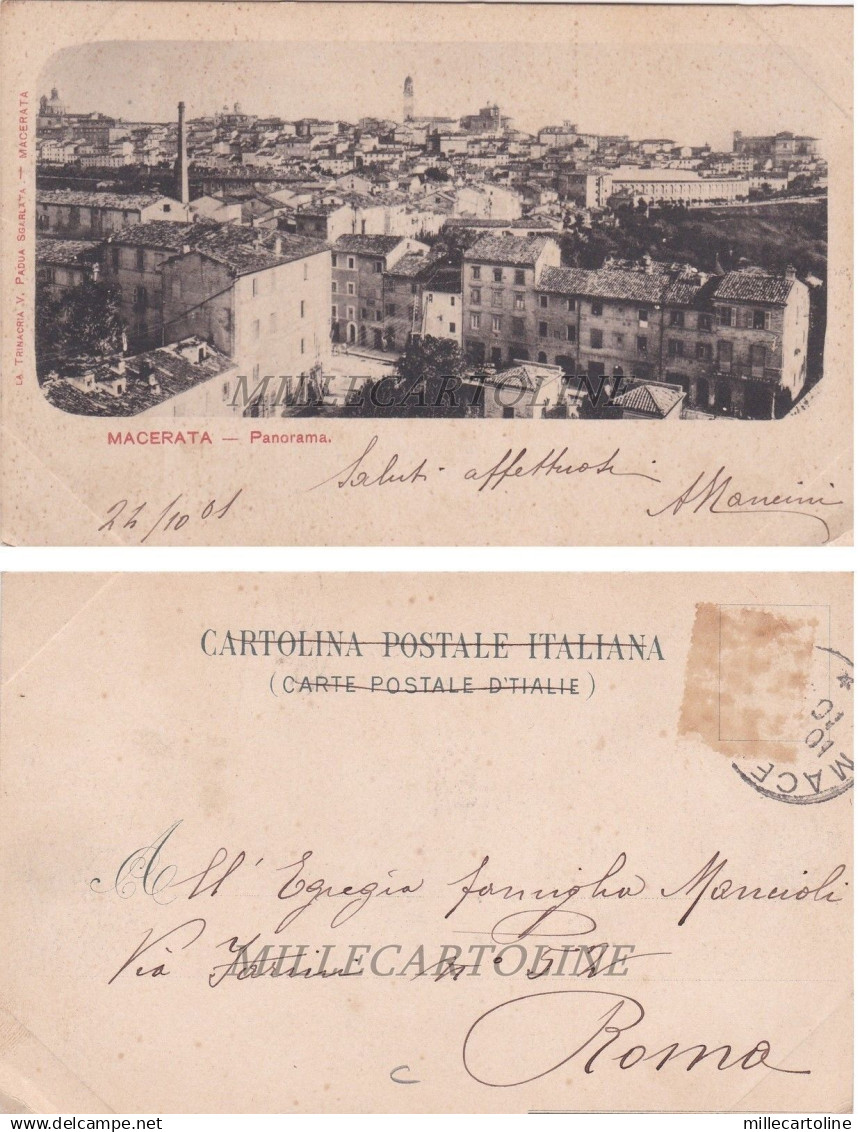 LA TRINACRIA V. PADUA SGARLATA — MACERATA
MILLECARTOLINE
MACERATA — Panorama.
Saluti affettuosi
A Mancini
24/10 01
CARTOLINA POSTALE ITALIANA
(CARTE POSTALE D'ITALIE)
MACE
10
All' Egregia famiglia Mancioli
Via Farini n° 52
MILLECARTOLINE
Roma
c
delcampe.net
millecartoline